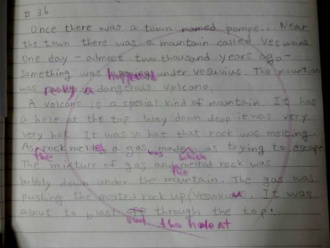 # 36
Once there was a town named Pompeii. Near
the town there was a mountain called Vesuvius
One day - almost two thousand years ago -
Something was happening under Vesuvius. The mountian
was really a dangerous volcano.
A volcano is a special kind of mountain. It has
a hole at the top. Way down deep it was very
very hot. It was so hot that rock was melting.
As rock melted a gas, made was trying to escape
the was which
The mixture of gas and melted rock was
the
bubbly down under the mountain. The gas was
pushing the melted rock up Vesuvius. It was
about to bust through the top.
out the hole at